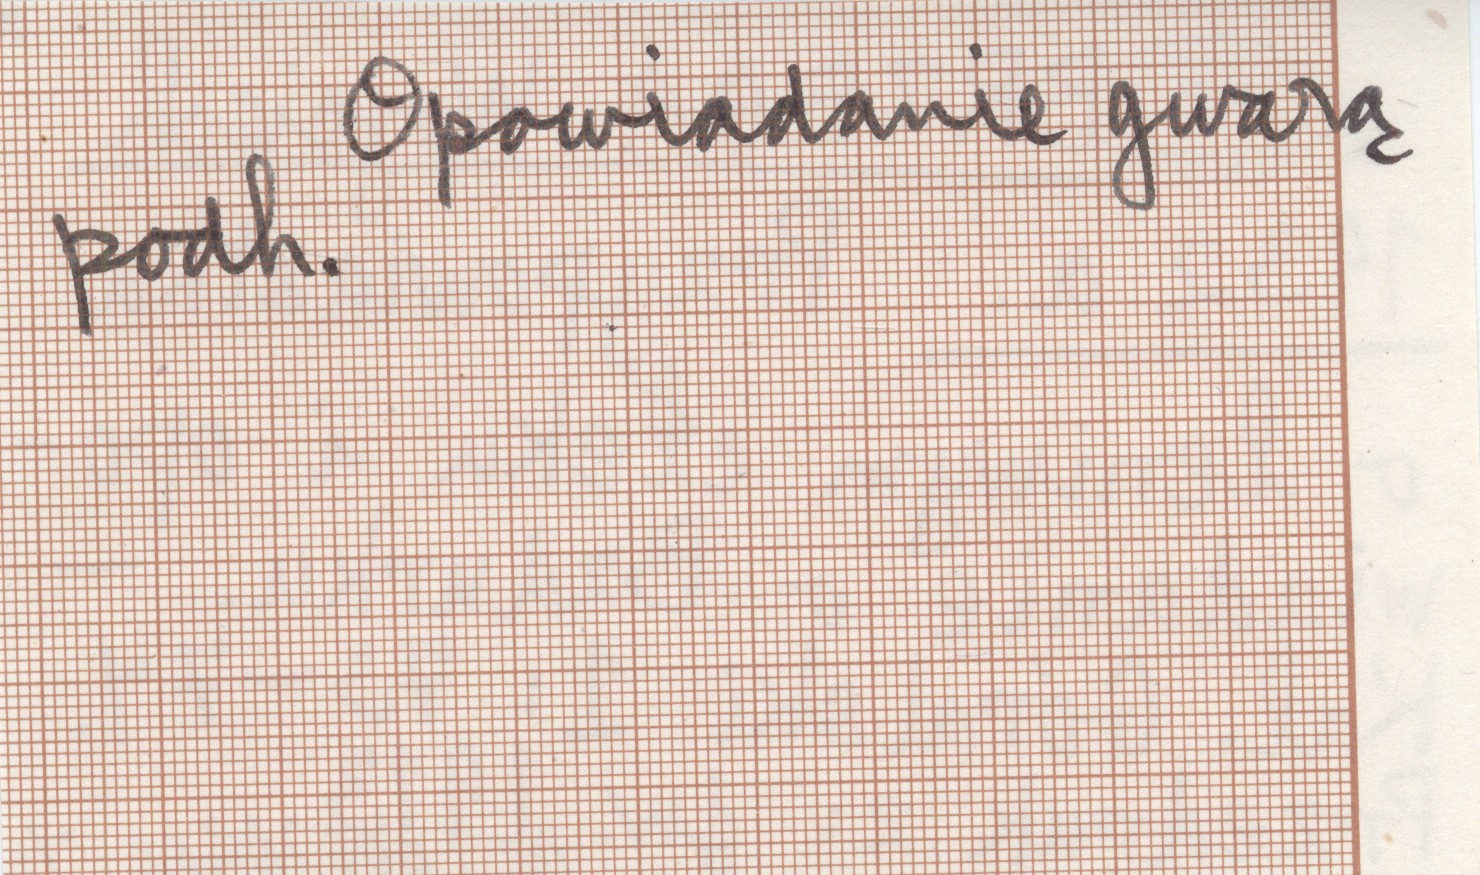 Opowiadanie gwarą
podh.